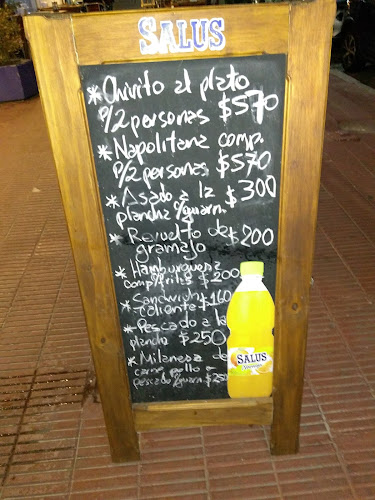 SALUS
* Chivito al plato
P/2 personas $570
* Napolitana comp.
P/2 personas $570
* Asado a la $300
plancha c/guarn.
* Revuelto de $200
gramajo
* Hamburguesa
comp. c/frits $200
* Sandwich $160
caliente
* Pescado a la
plancha $250
* Milanesa de
carne pollo o
pescado c/guarn. $250
SALUS